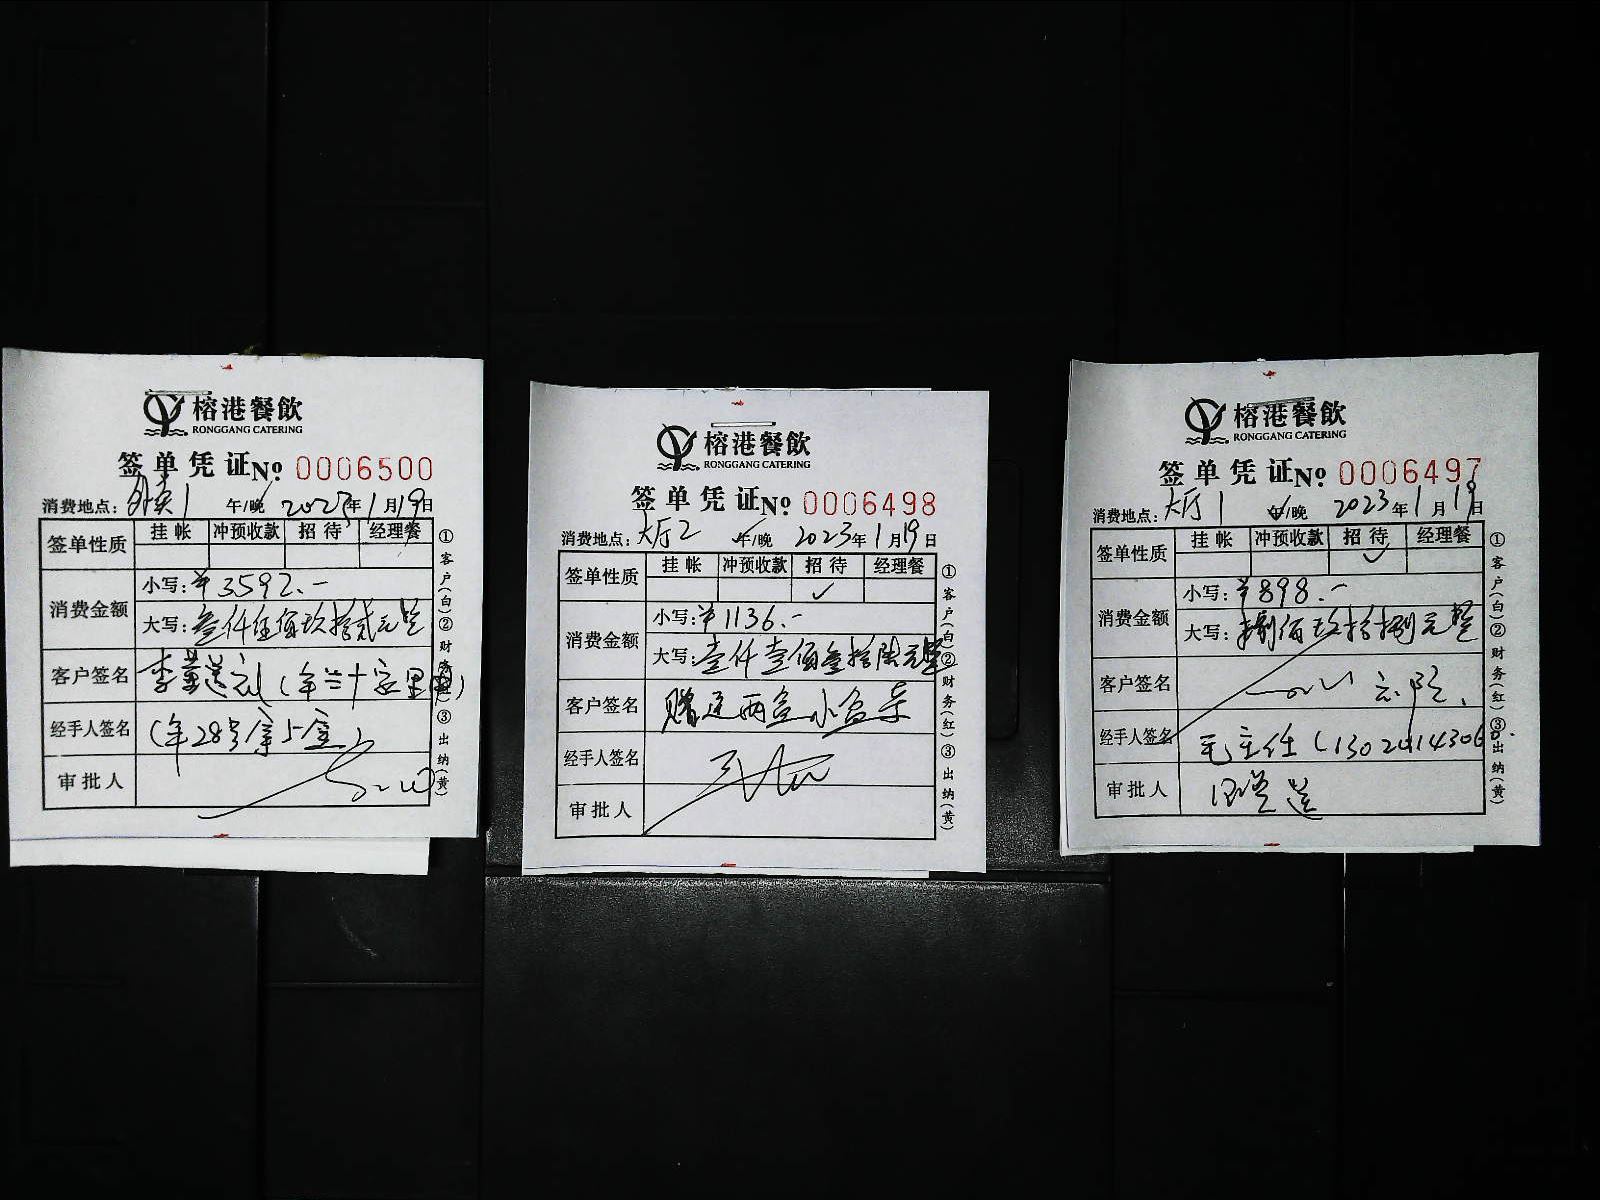 榕港餐飲
RONGGANG CATERING
签单凭证 No 0006500
消费地点: 外卖1 午/晚 2023年1月19日
签单性质 挂帐 冲预收款 招待 经理餐
消费金额
小写: ¥3592.-
大写: 叁仟伍佰玖拾贰元整
客户签名 李董送礼
经手人签名 (年28号拿
审批人
①客户(白)②财务(红)③出纳(黄)
榕港餐飲
RONGGANG CATERING
签单凭证 No 0006498
消费地点: 大厅2 午/晚 2023年1月19日
签单性质 挂帐 冲预收款 招待 经理餐
✓
消费金额
小写: ¥1136.-
大写: 壹仟壹佰叁拾陆元整
客户签名 赠送两盒小盆菜
经手人签名
审批人
①客户(白)②财务(红)③出纳(黄)
榕港餐飲
RONGGANG CATERING
签单凭证 No 0006497
消费地点: 大厅1 午/晚 2023年1月19日
签单性质 挂帐 冲预收款 招待 经理餐
✓
消费金额
小写: ¥898.-
大写: 捌佰玖拾捌元整
客户签名
经手人签名 毛主任
审批人
①客户(白)②财务(红)③出纳(黄)